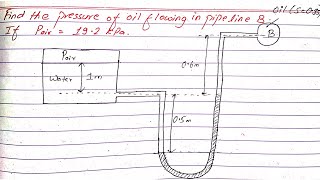 Find the pressure of oil flowing in pipeline B.
If Pair = 19.2 kPa.
Oil (S=0.8
Pair
Water
1m
0.6m
B
0.5m